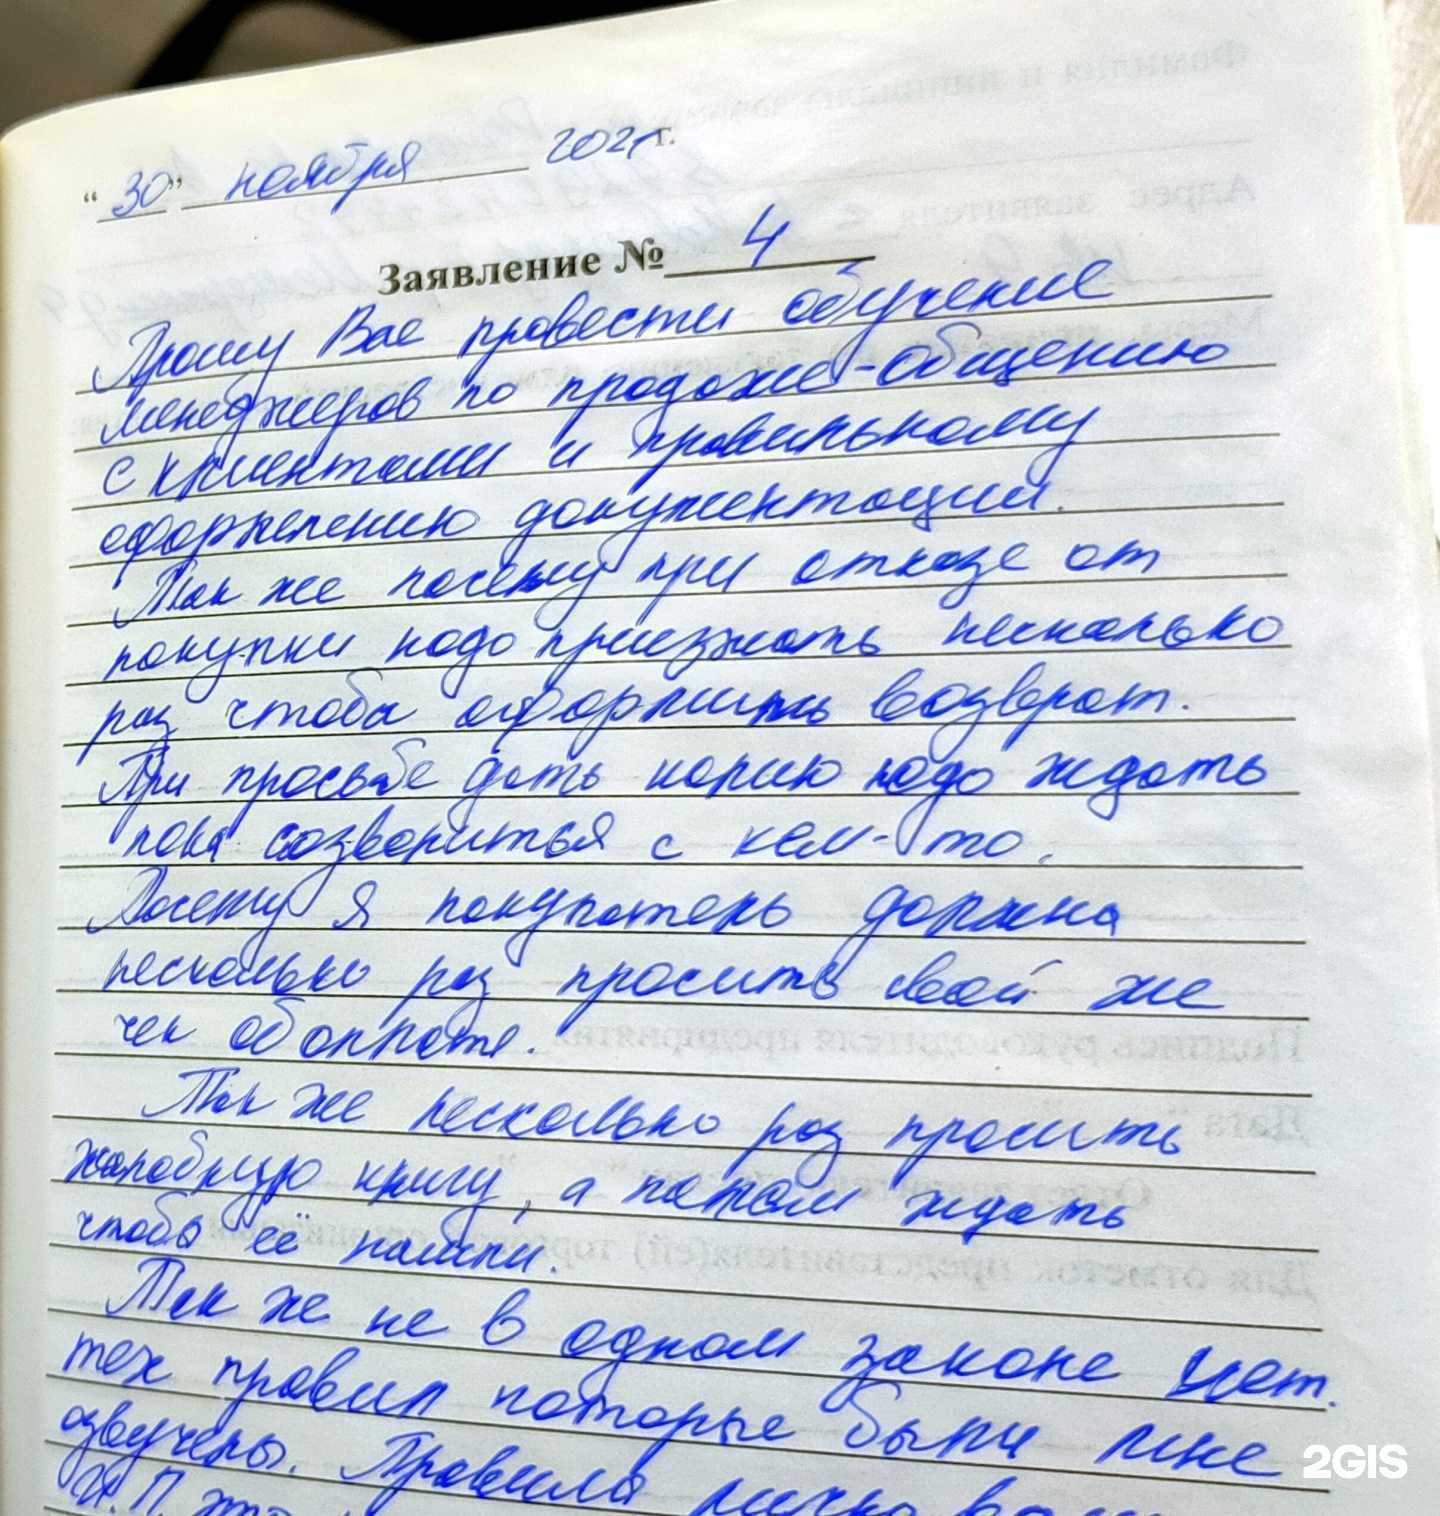 "30" ноября 2021 г.
Заявление № 4
Прошу Вас провести обучение
менеджеров по продаже-общению
с клиентами и правильному
оформлению документации.
Так же почему при отказе от
покупки надо приезжать несколько
раз чтоба оформить возврат.
При просьбе дать копию надо ждать
пока созвониться с кем-то.
Почему я покупатель должна
несколько раз просить свой же
чек об оплате.
Так же несколько раз просить
жалобную книгу, а потом ждать
чтобы её нашли.
Так же не в одном законе нет.
тех правил которые были мне
озвучены. Правила лично
И.П. это
2GIS